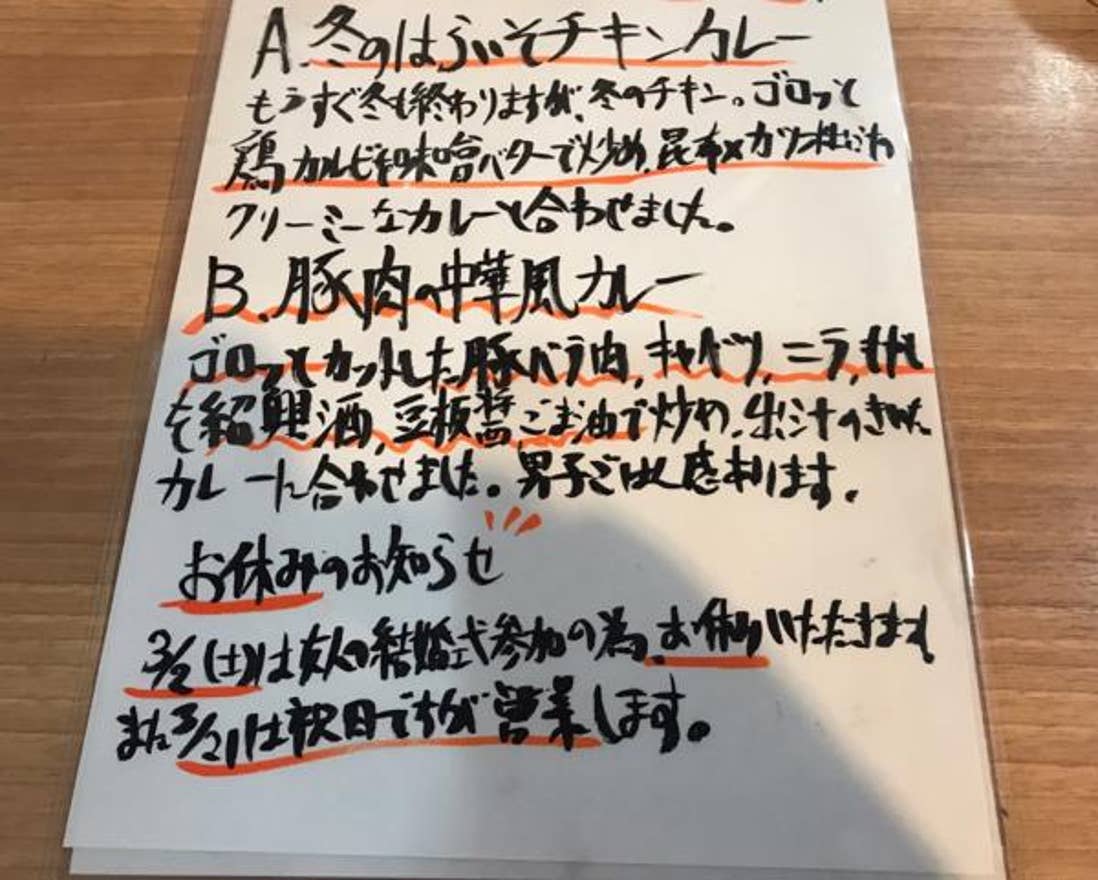 A.冬のはらいそチキンカレー
もうすぐ冬も終わりますが、冬のチキン。ゴロッと
鶏カルビを味噌バターで炒め、昆布×カツオだしの
クリーミーなカレーと合わせました。
B.豚肉の中華風カレー
ゴロッとカットした豚バラ肉、キャベツ、ニラ、もやし
を紹興酒、豆板醤、ごま油で炒め、出汁のきいた
カレーに合わせました。男子ごはん感有ります。
お休みのお知らせ
3/2(土)は友人の結婚式参加の為、お休みいただきます。
また3/21は祝日ですが営業します。